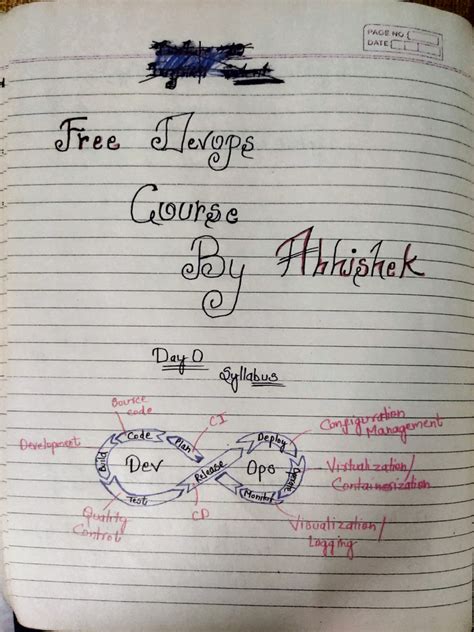 PAGE NO.
DATE
Free Devops
Course
By Abhishek
Day 0
Syllabus
Source
code
CI
Configuration
Management
Development
Code
Plan
Deploy
Build
Dev
Release
Ops
Operate
Virtualization/
Containerization
Test
Monitor
Quality
Control
CD
Visualization/
Logging